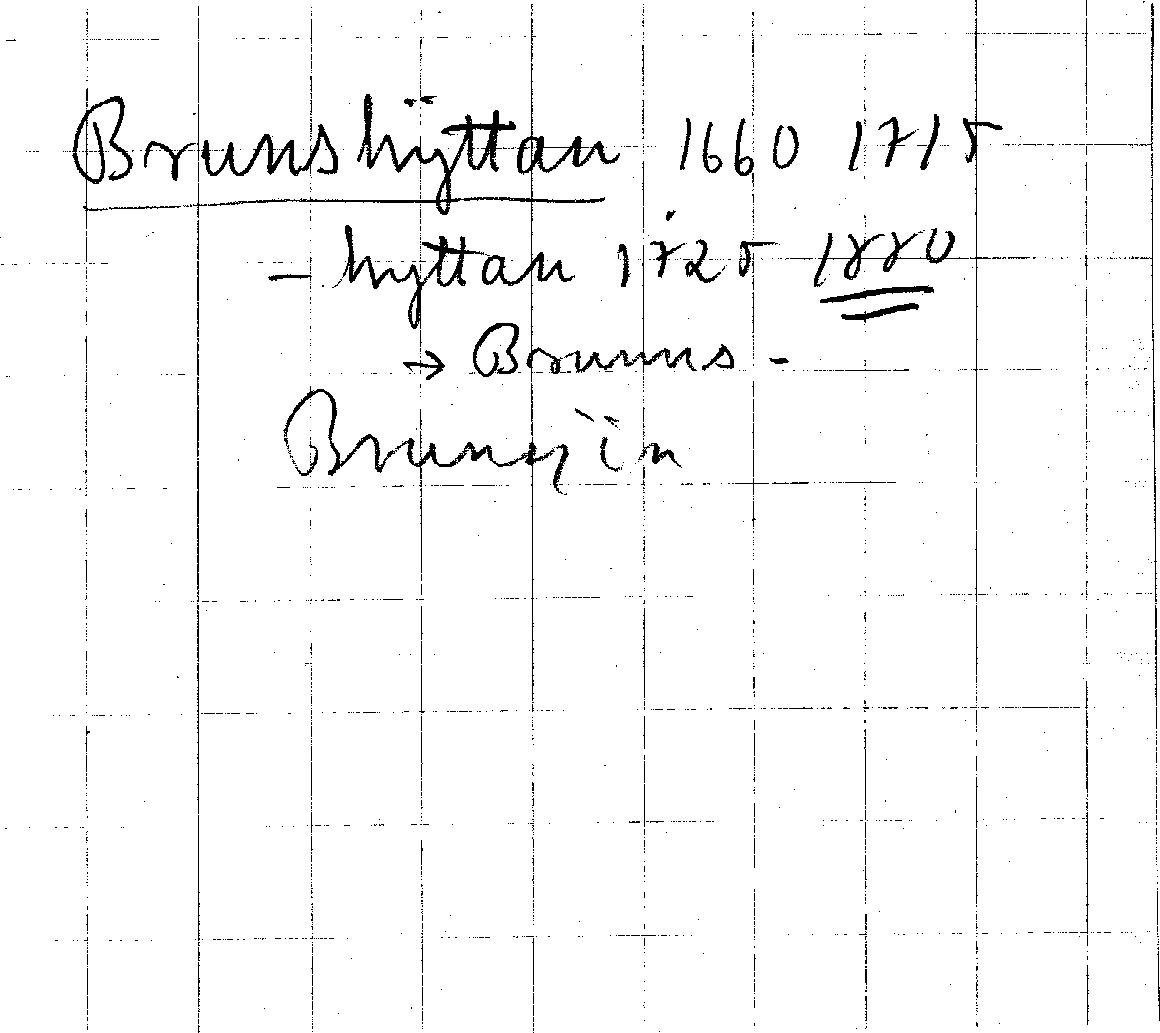 Brunshÿttan 1660 1715
- hyttan 1725 1880
→ Brunns -
Brunsjön